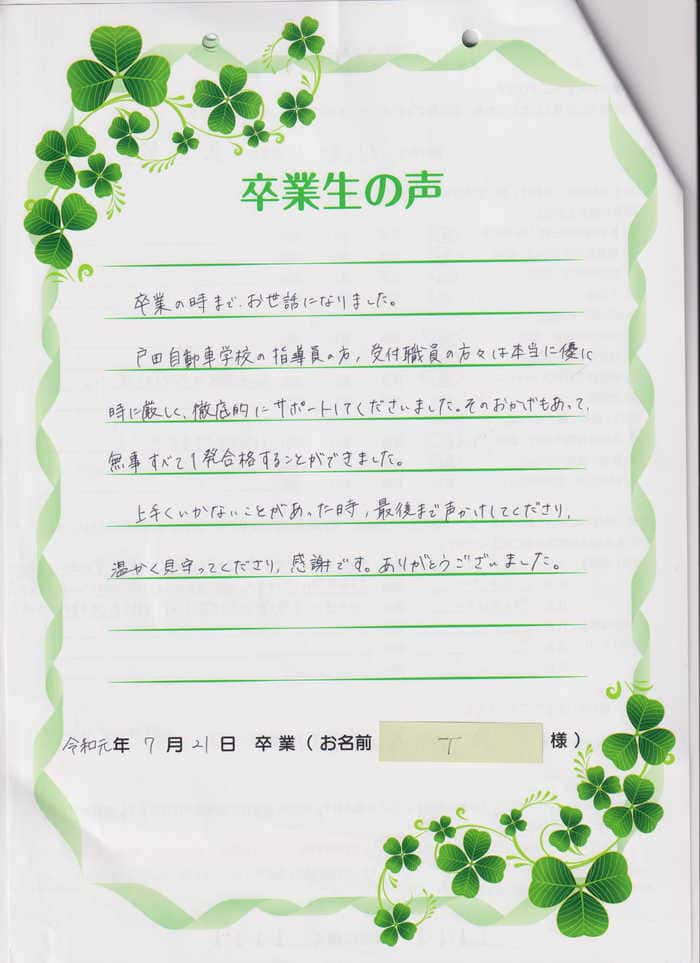 卒業生の声
卒業の時まで、お世話になりました。
戸田自動車学校の指導員の方，受付職員の方々は本当に優に
時に厳しく、徹底的にサポートしてくださいました。そのおかげもあって、
無事すべて1発合格することができました。
上手くいかないことがあった時，最後まで声かけしてくださり，
温かく見守ってくださり，感謝です。ありがとうございました。
令和元年 7月 21日 卒業（お名前 T 様）